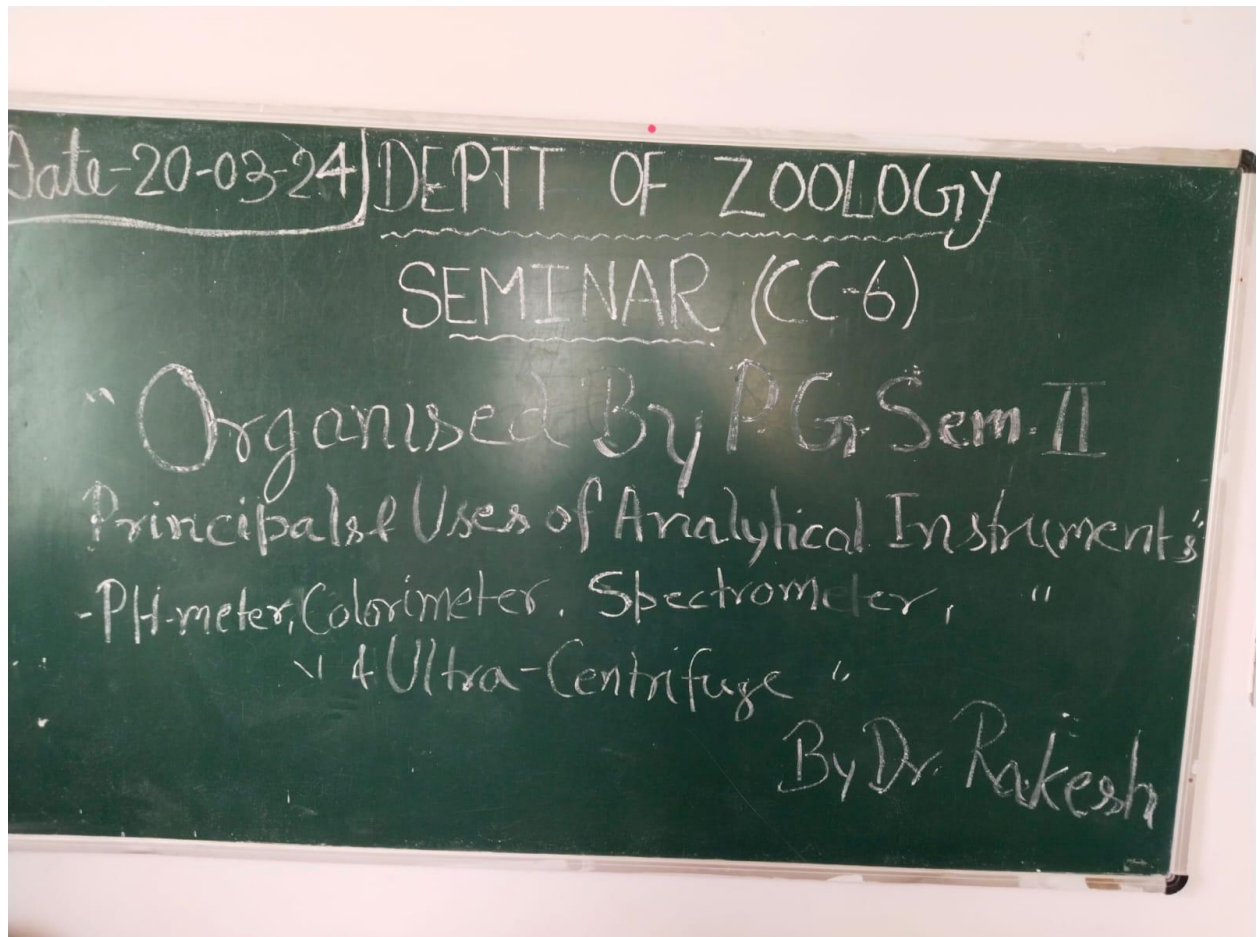 Date-20-03-24 DEPTT OF ZOOLOGY
SEMINAR (CC-6)
" Organised By P.G Sem. II
Principals & Uses of Analytical Instruments"
-PH-meter, Colorimeter. Spectrometer, "
" & Ultra-Centrifuge "
By Dr. Rakesh